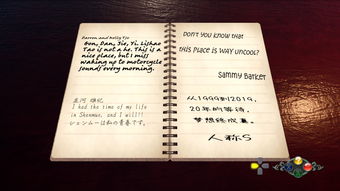 Darren and Holly Tse
Bon, Dan, Jie, Yi, Lishao
Tao is not a he. This is a
nice place, but I miss
waking up to motorcycle
sounds every morning.
I had the time of my life
in Shenmue, and I will!!
シェンムーは私の青春です。
Don't you know that
this place is way uncool?
Sammy Barker
从1999到2019,
20年的等待,
梦想终成真。
人称S